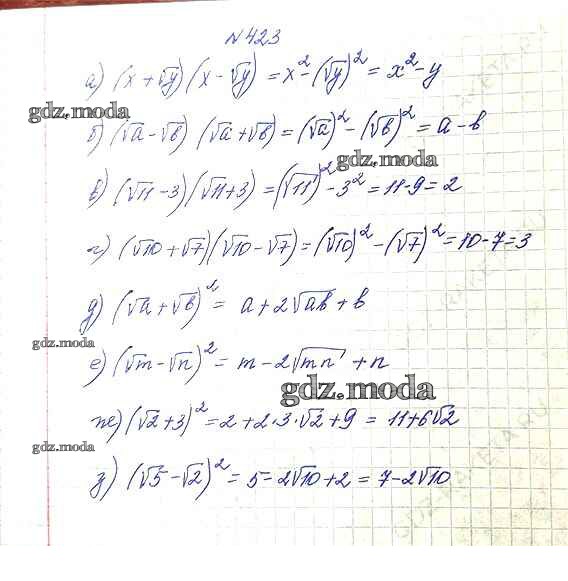 №423
а) (x + √y)(x - √y) = x² - (√y)² = x² - y
gdz.moda
б) (√a - √b) (√a + √b) = (√a)² - (√b)² = a - b
gdz.moda
в) (√11 - 3)(√11 + 3) = (√11)² - 3² = 11 - 9 = 2
г) (√10 + √7)(√10 - √7) = (√10)² - (√7)² = 10 - 7 = 3
д) (√a + √b)² = a + 2√ab + b
gdz.moda
е) (√m - √n)² = m - 2√mn + n
gdz.moda
ж) (√2 + 3)² = 2 + 2·3·√2 + 9 = 11 + 6√2
gdz.moda
з) (√5 - √2)² = 5 - 2√10 + 2 = 7 - 2√10